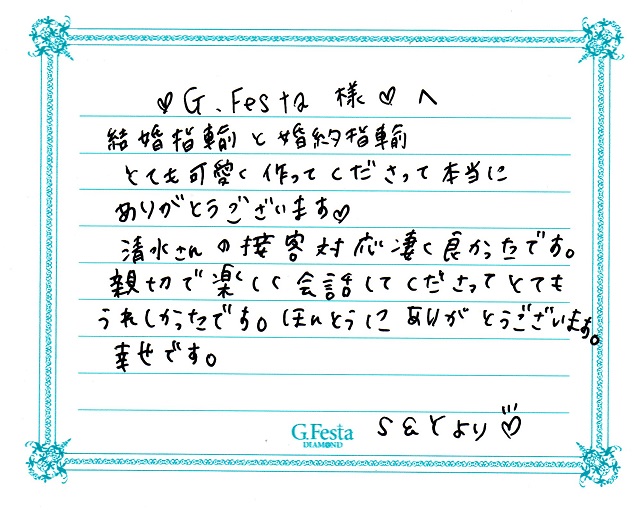 ♡ G.Festa 様 ♡ へ
結婚指輪と婚約指輪
とても可愛く作ってくださって本当に
ありがとうございます♡
清水さんの接客対応凄く良かったです。
親切で楽しく会話してくださってとても
うれしかったです。ほんとうにありがとうございます。
幸せです。
S&Yより♡
G.Festa
DIAMOND